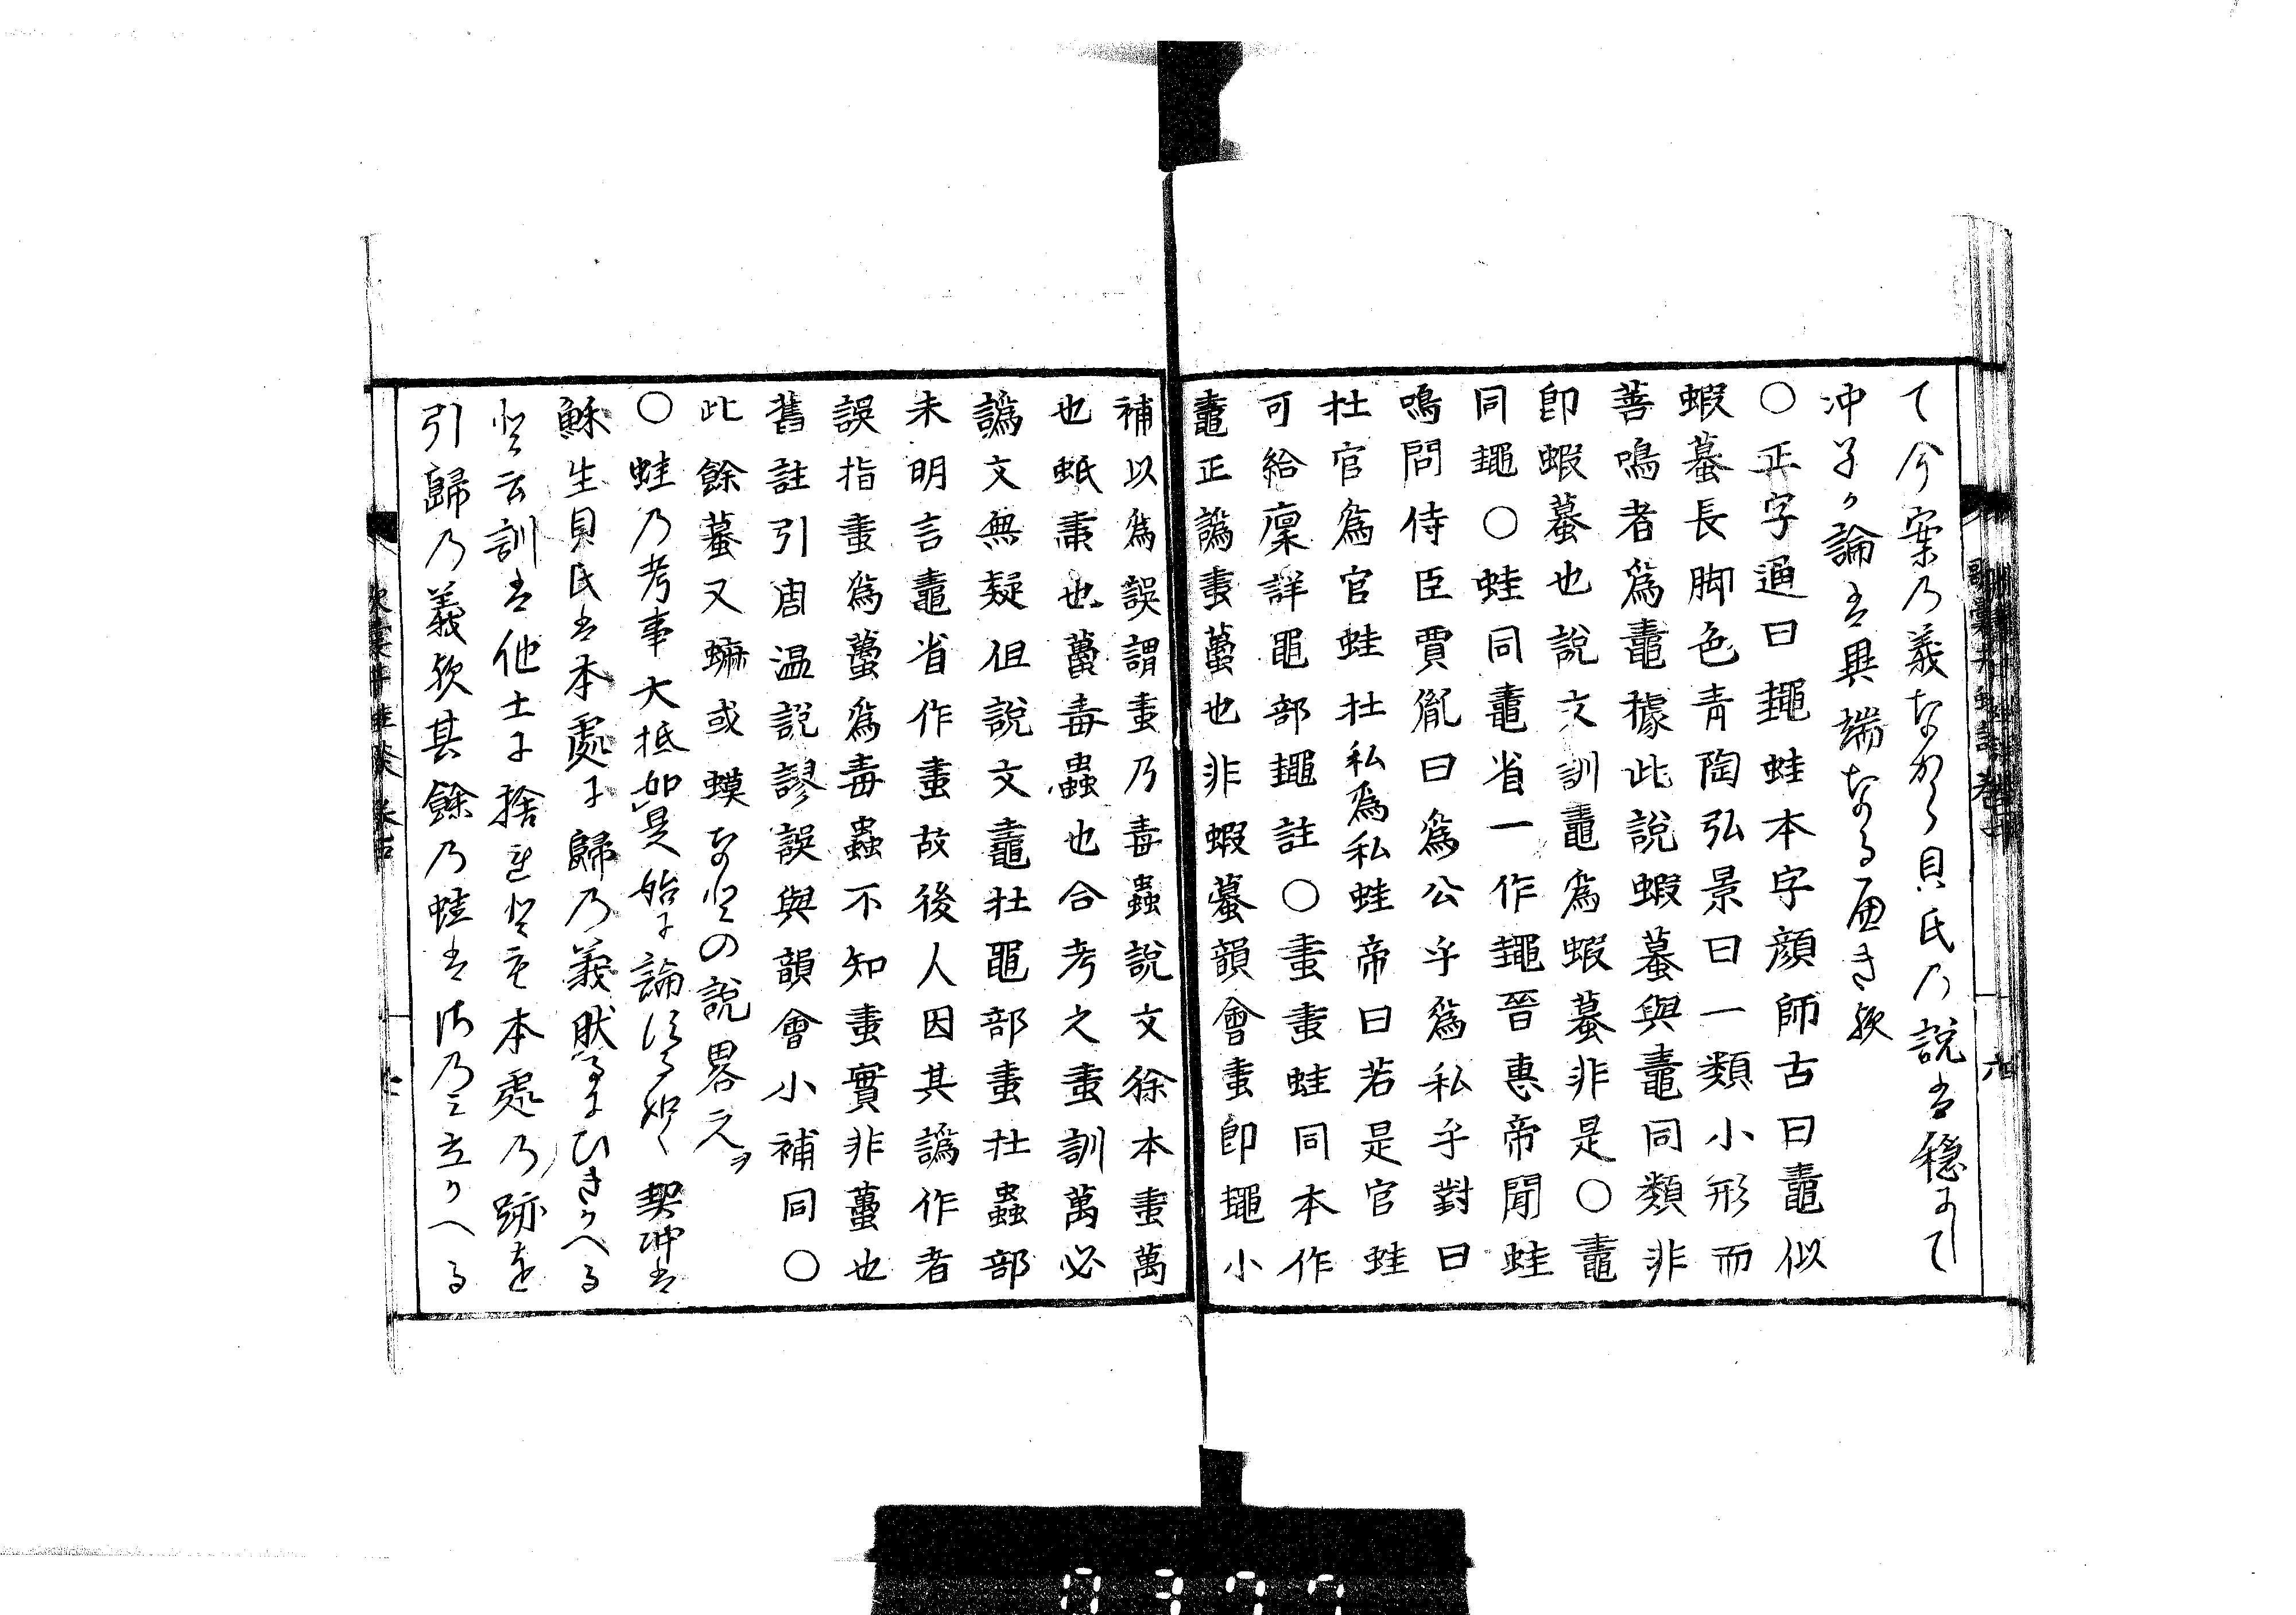 て今案乃義なから貝氏乃説は穏にして
冲子か論は異端なる面き歟
〇正字通曰䵷蛙本字顔師古曰鼃似
蝦蟇長脚色青陶弘景曰一類小形而
善鳴者爲鼃據此説蝦蟇與鼃同類非
卽蝦蟇也説文訓鼃爲蝦蟇非是〇鼃
同䵷〇蛙同鼃省一作䵷晉惠帝聞蛙
鳴問侍臣賈胤曰爲公乎爲私乎對曰
在官爲官蛙在私爲私蛙帝曰若是官蛙
可給廩詳黽部䵷註〇𧊅𧊅蛙同本作
鼃正譌𧊅蠆也非蝦蟇韻會𧊅卽䵷小
補以爲誤謂𧊅乃毒蟲説文徐本𧊅萬
也蚔𧊅也蠆毒蟲也合考之𧊅訓萬必
譌文無疑但説文鼃在黽部𧊅在蟲部
未明言鼃省作𧊅故後人因其譌作者
誤指𧊅爲蠆爲毒蟲不知𧊅實非蠆也
舊註引周温説謬誤與韻會小補同〇
此餘蟇又蟆或蟆なとの説畧之ヲ
〇蛙乃考事大抵如是始に論する如く契冲は
穌生貝氏は本處に歸乃義然るにひきかへる
と云訓は他土に捨れとも本處乃跡を
引歸乃義歟其餘乃蛙は 乃ミ立かへる
六
七